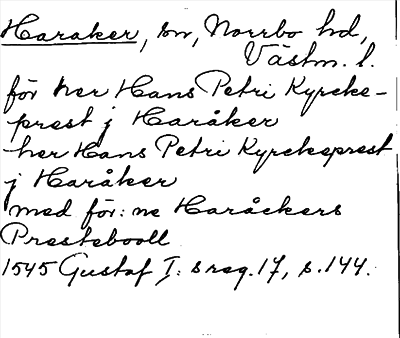 Haraker, sn, Norrbo hd,
Västm. l.
för her Hans Petri Kyrcke-
prest j Haråker
her Hans Petri Kyrckeprest
j Haråker
med för: ne Haråckers
Prestebooll
1545 Gustaf I: s reg. 17, s. 144.